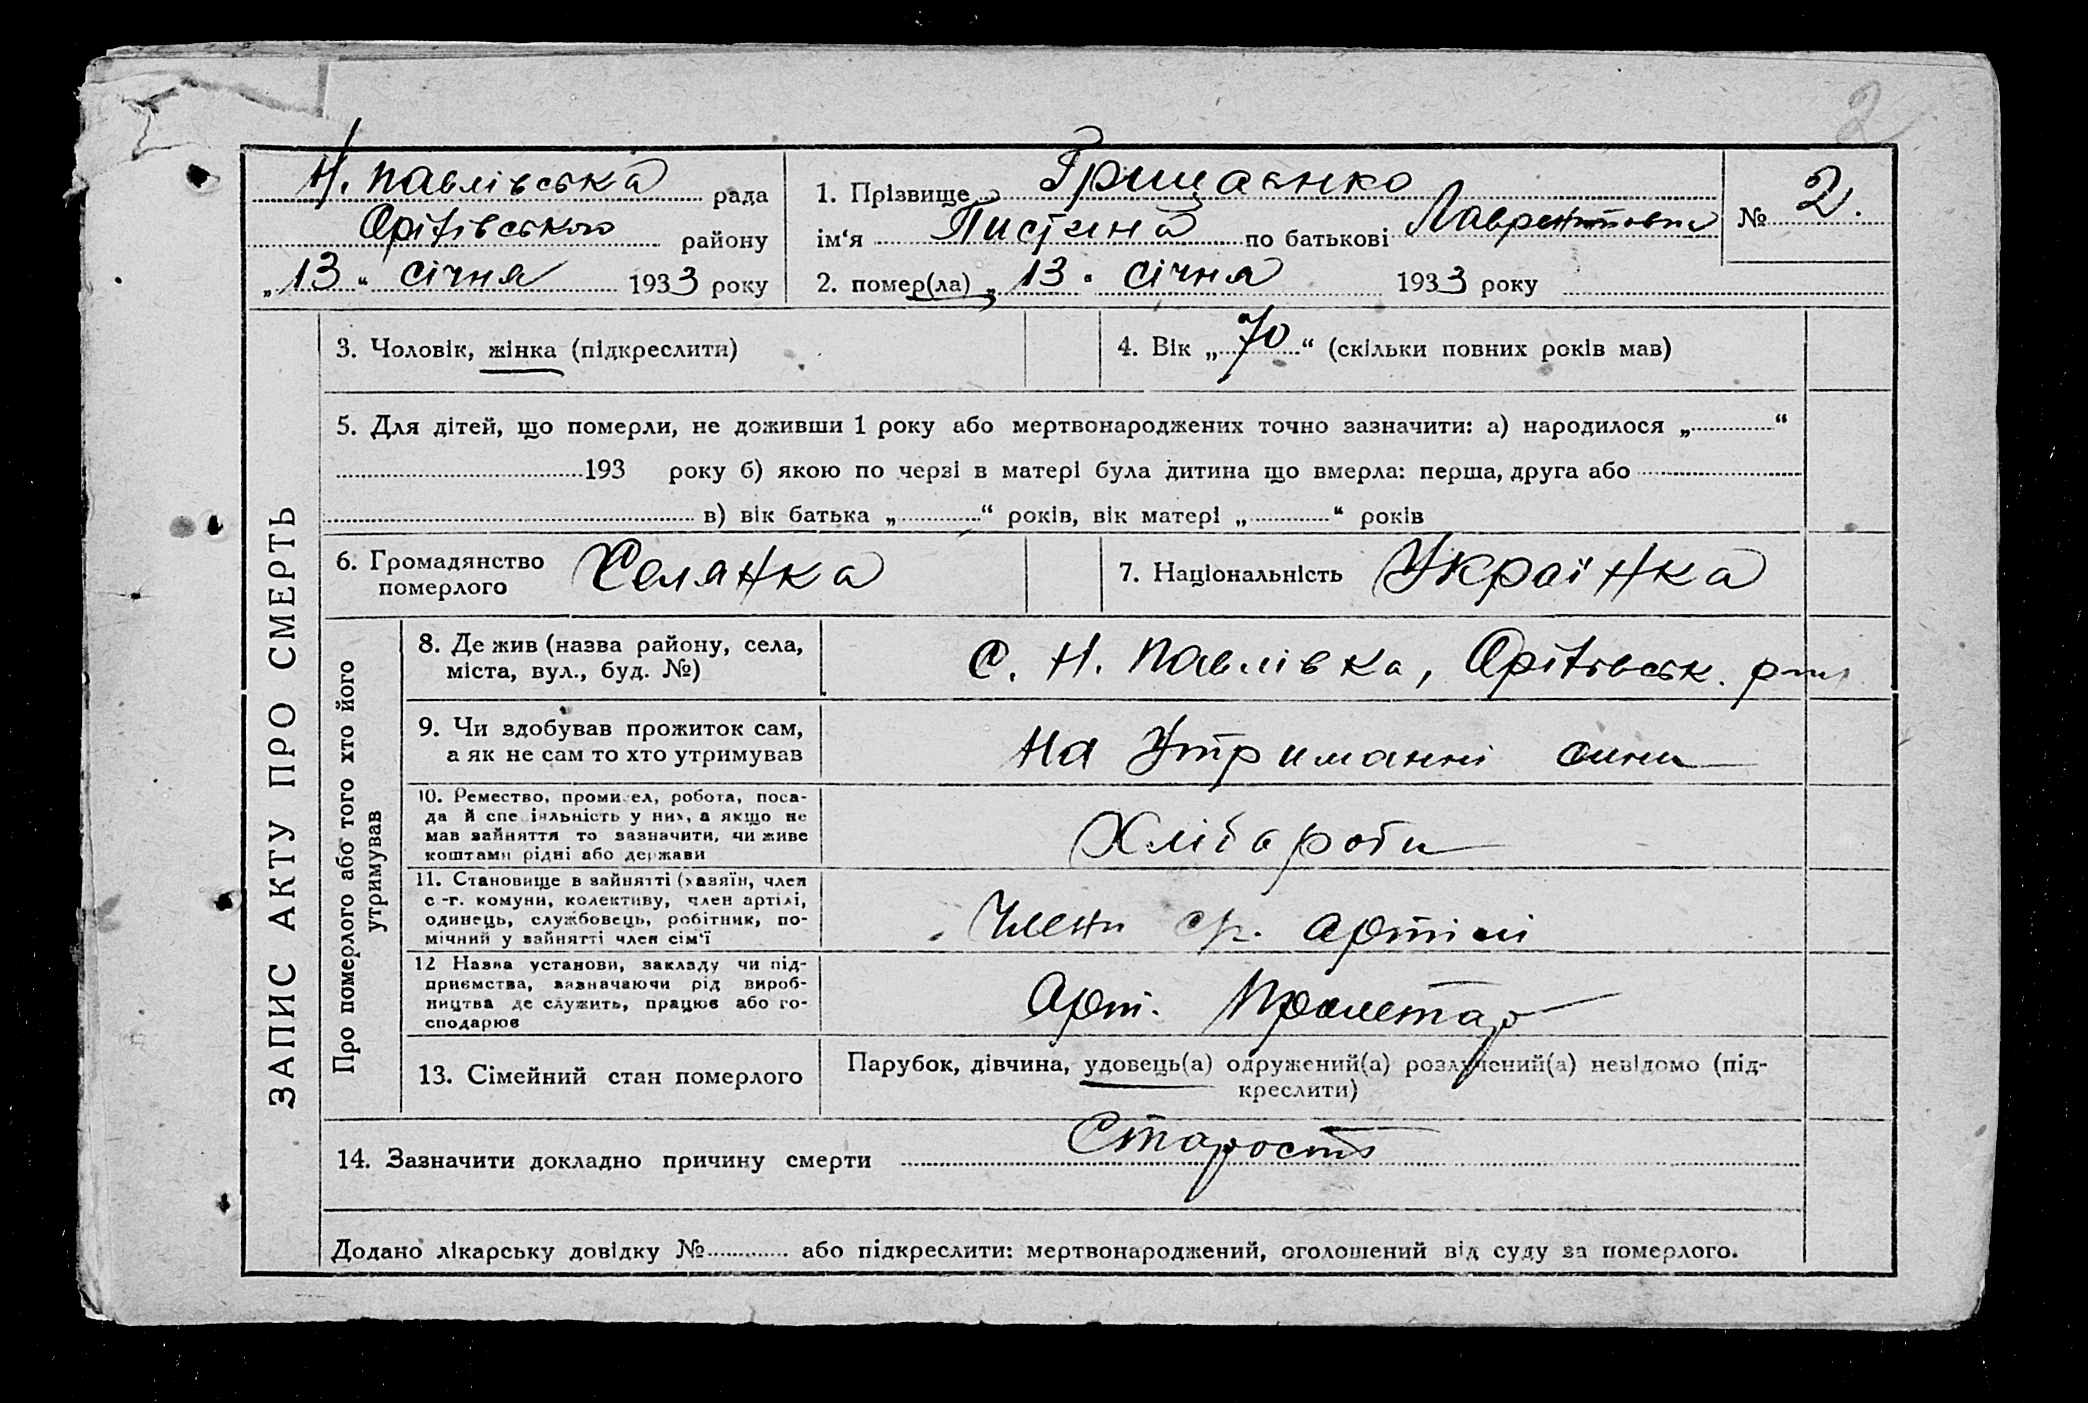 2
Н. Павлівська рада
Оріхівського району
„13“ січня 1933 року
1. Прізвище Грищаєнко
ім‘я Пистина по батькові Лаврентіовна
№ 2.
2. помер(ла) „13“ січня 1933 року
ЗАПИС АКТУ ПРО СМЕРТЬ
3. Чоловік, жінка (підкреслити)
4. Вік „70“ (скільки повних років мав)
5. Для дітей, що померли, не доживши 1 року або мертвонароджених точно зазначити: а) народилося „ “
193 року б) якою по черзі в матері була дитина що вмерла: перша, друга або
в) вік батька „ “ років, вік матері „ “ років
6. Громадянство
померлого
Селянка
7. Національність Українка
Про померлого або того хто його
утримував
8. Де жив (назва району, села,
міста, вул., буд. №)
с. Н. Павлівка, Оріхівськ.
9. Чи здобував прожиток сам,
а як не сам то хто утримував
на утриманні сина
10. Ремество, промисел, робота, поса-
да й спеціяльність у них, а якщо не
мав зайняття то зазначити, чи живе
коштами рідні або держави
Хлібароби
11. Становище в зайнятті (хазяїн, член
с.-г. комуни, колективу, член артілі,
одинець, службовець, робітник, по-
мічний у зайнятті член сім‘ї
Члени с/г. артілі
12 Назва установи, закладу чи під-
приємства, зазначаючи рід вироб-
ництва де служить, працює або го-
сподарює
Арт. Пролетар
13. Сімейний стан померлого
Парубок, дівчина, удовець(а) одружений(а) розлучений(а) невідомо (під-
креслити)
14. Зазначити докладно причину смерти Старость
Додано лікарську довідку № або підкреслити: мертвонароджений, оголошений від суду за померлого.